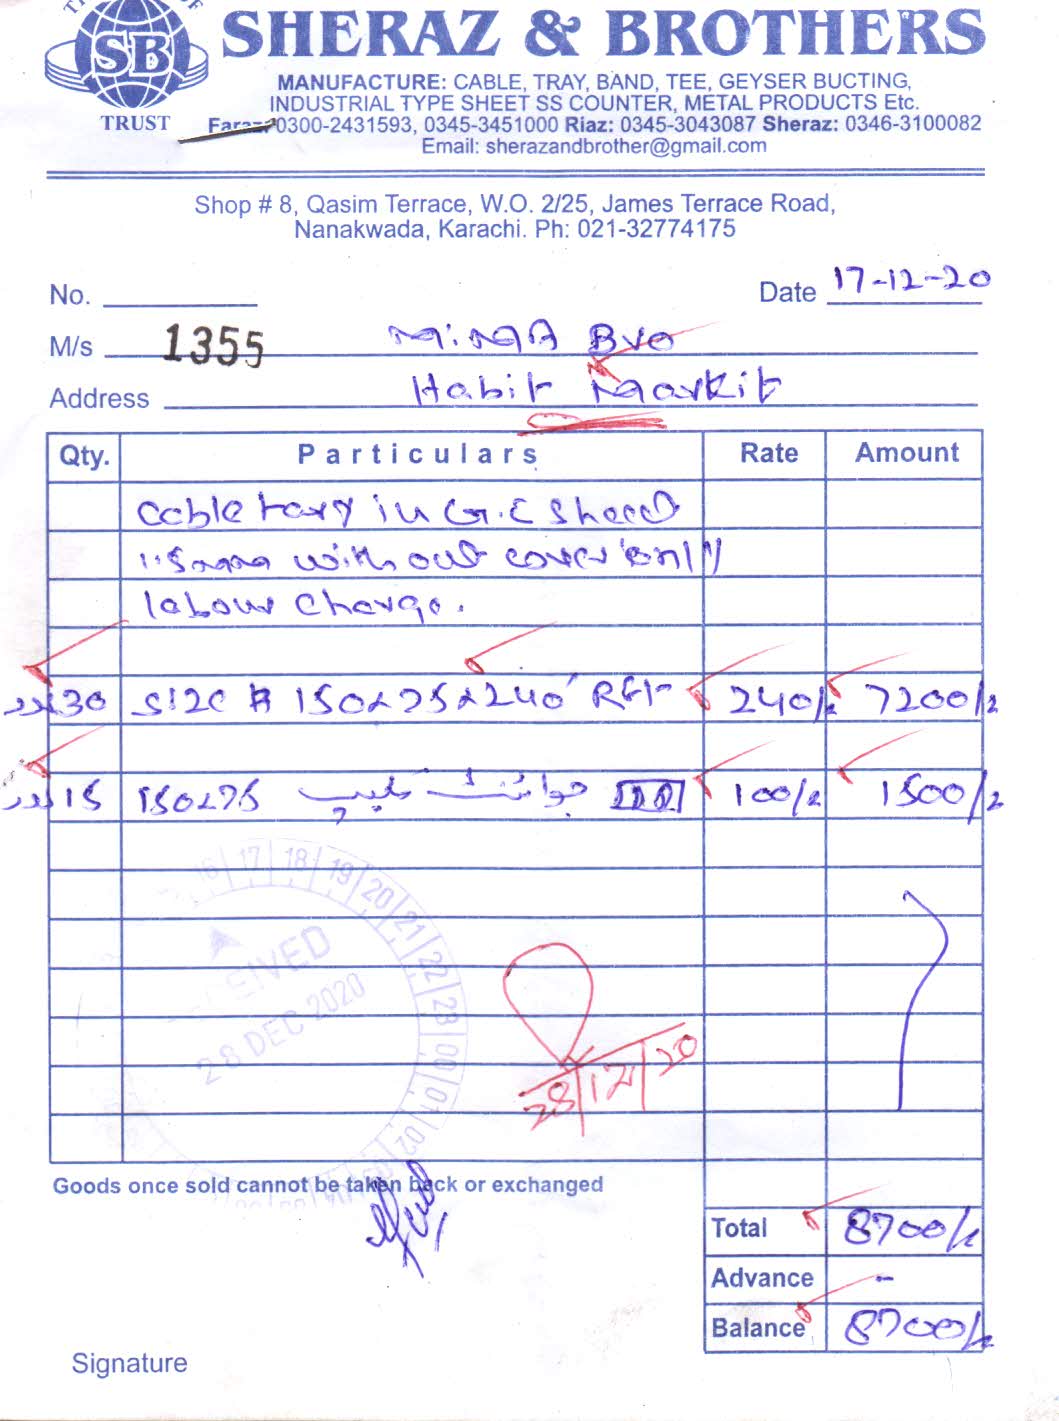 SB
TRUST
SHERAZ & BROTHERS
MANUFACTURE: CABLE, TRAY, BAND, TEE, GEYSER BUCTING,
INDUSTRIAL TYPE SHEET SS COUNTER, METAL PRODUCTS Etc.
Faraz: 0300-2431593, 0345-3451000 Riaz: 0345-3043087 Sheraz: 0346-3100082
Email: sherazandbrother@gmail.com
Shop # 8, Qasim Terrace, W.O. 2/25, James Terrace Road,
Nanakwada, Karachi. Ph: 021-32774175
No.
Date 17-12-20
M/s 1355 Bro
Address Habit Markit
Qty. Particulars Rate Amount
cable tary in G.E Sheed
1.5mm without cover only
labour charge.
30 Size # 150x75x240' RFt 240/= 7200/=
15 150x75 جوائنٹ 100/= 1500/=
16 17 18 19 20 21 22 23 00 01 02
RECEIVED
28 DEC 2020
28/12/20
Goods once sold cannot be taken back or exchanged
Total 8700/=
Advance -
Balance 8700/=
Signature